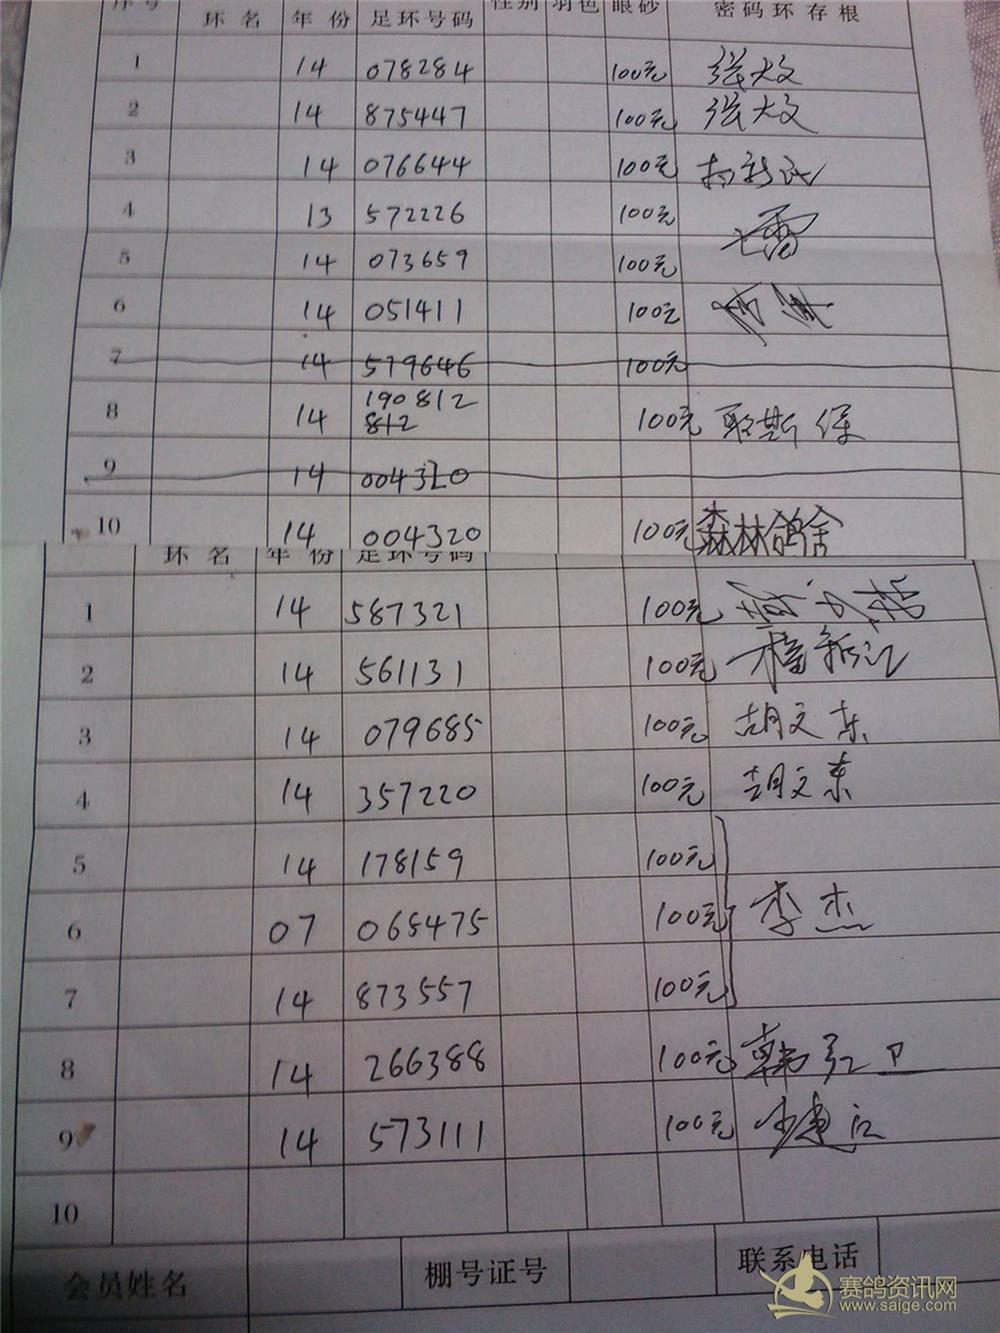 序号 环名 年份 足环号码 性别 羽色 眼砂 密码环存根
1 14 078284 100元 张大文
2 14 875447 100元 张大文
3 14 076644 100元
4 13 572226 100元
5 14 073659 100元
6 14 051411 100元
7 14 579646 100元
8 14 190812 100元
812
9 14 004320
10 14 004320 100元 森林鸽舍
环名 年份 足环号码
1 14 587321 100元
2 14 561131 100元
3 14 079685 100元 胡文东
4 14 357220 100元 胡文东
5 14 178159 100元
6 07 065475 100元 李杰
7 14 873557 100元
8 14 266388 100元 韩红卫
9 14 573111 100元
10
会员姓名 棚号证号 联系电话
赛鸽资讯网
www.saige.com